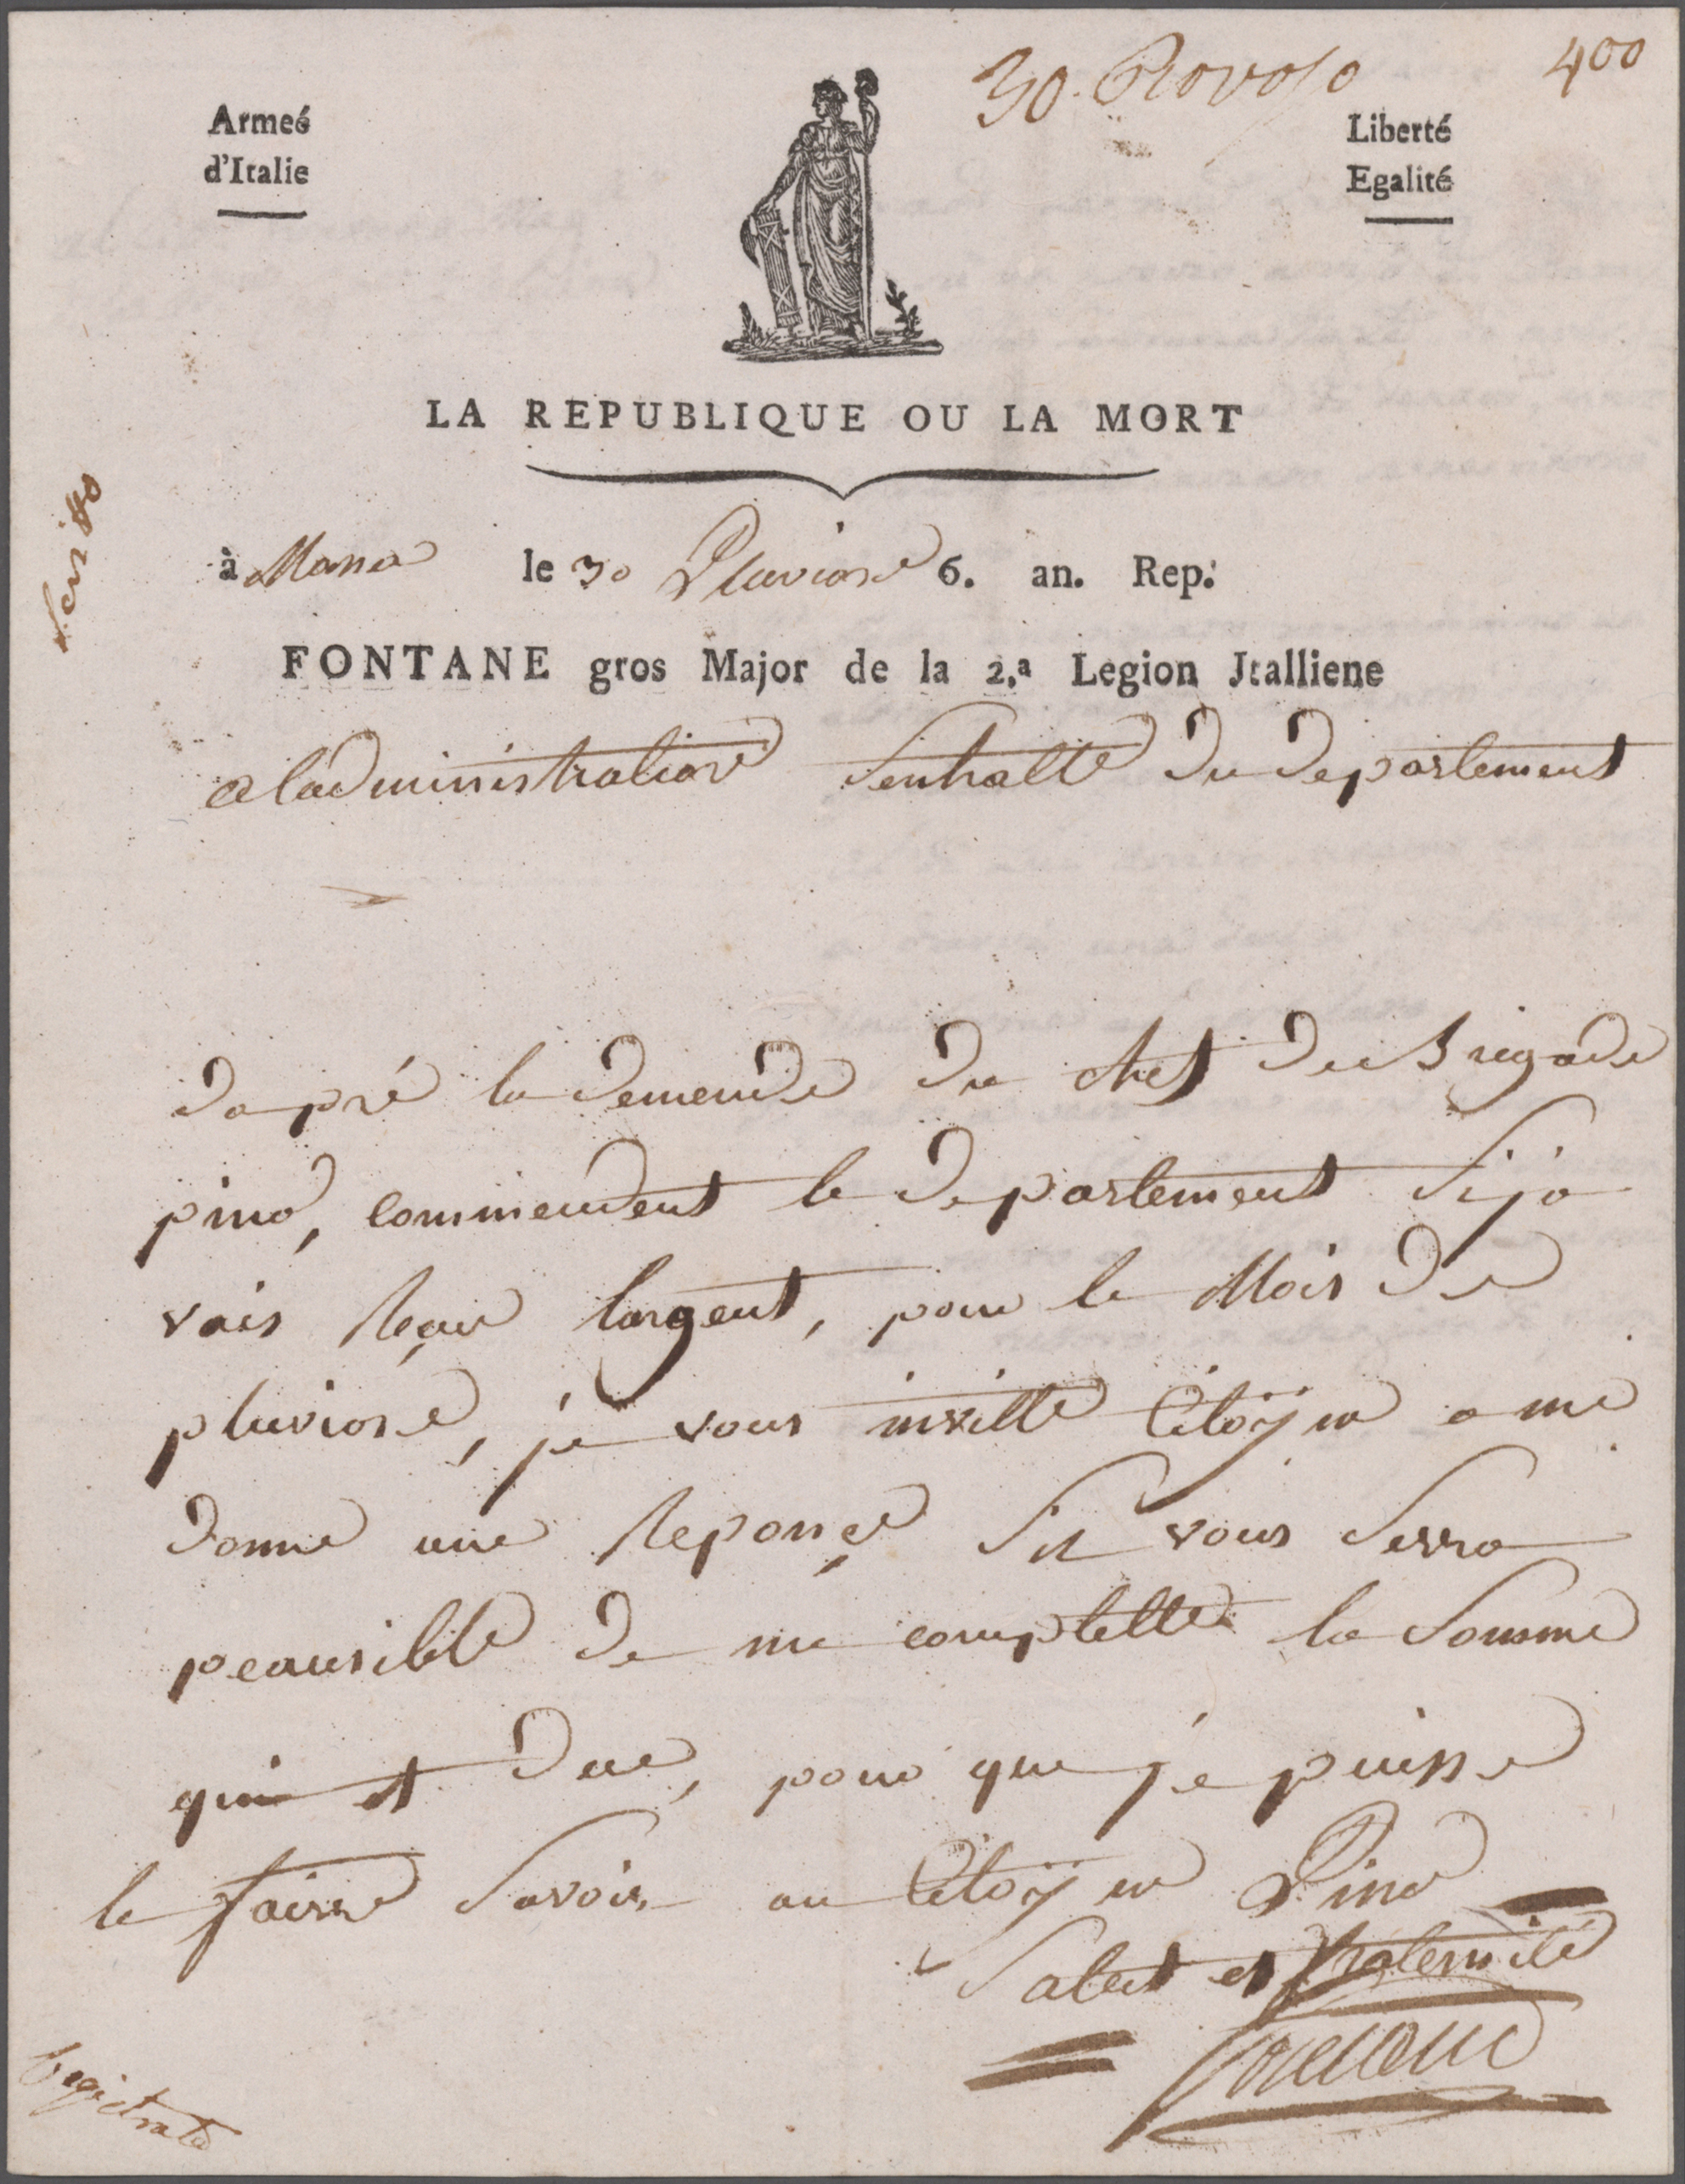 30. Piovoso 400
Armeé
d'Italie
Liberté
Egalité
LA REPUBLIQUE OU LA MORT
à Massa le 30 Pluviose 6. an. Rep.
FONTANE gros Major de la 2.a Legion Jtalliene
a ladministration Sentralle du departement
dapré la demende du chef de Brigade
pino, commendent le departement Si ja
vais reçu largent, pour le Mois de
pluviose, je vous invitte Citoÿen a me
donne une reponçe Sil vous Serra
peausible de me complette la Somme
qui et due, pour que je puisse
le fairre Savoir au Citoÿen Pino
Salut et fraternité
Fontane
Scritto
Registrata